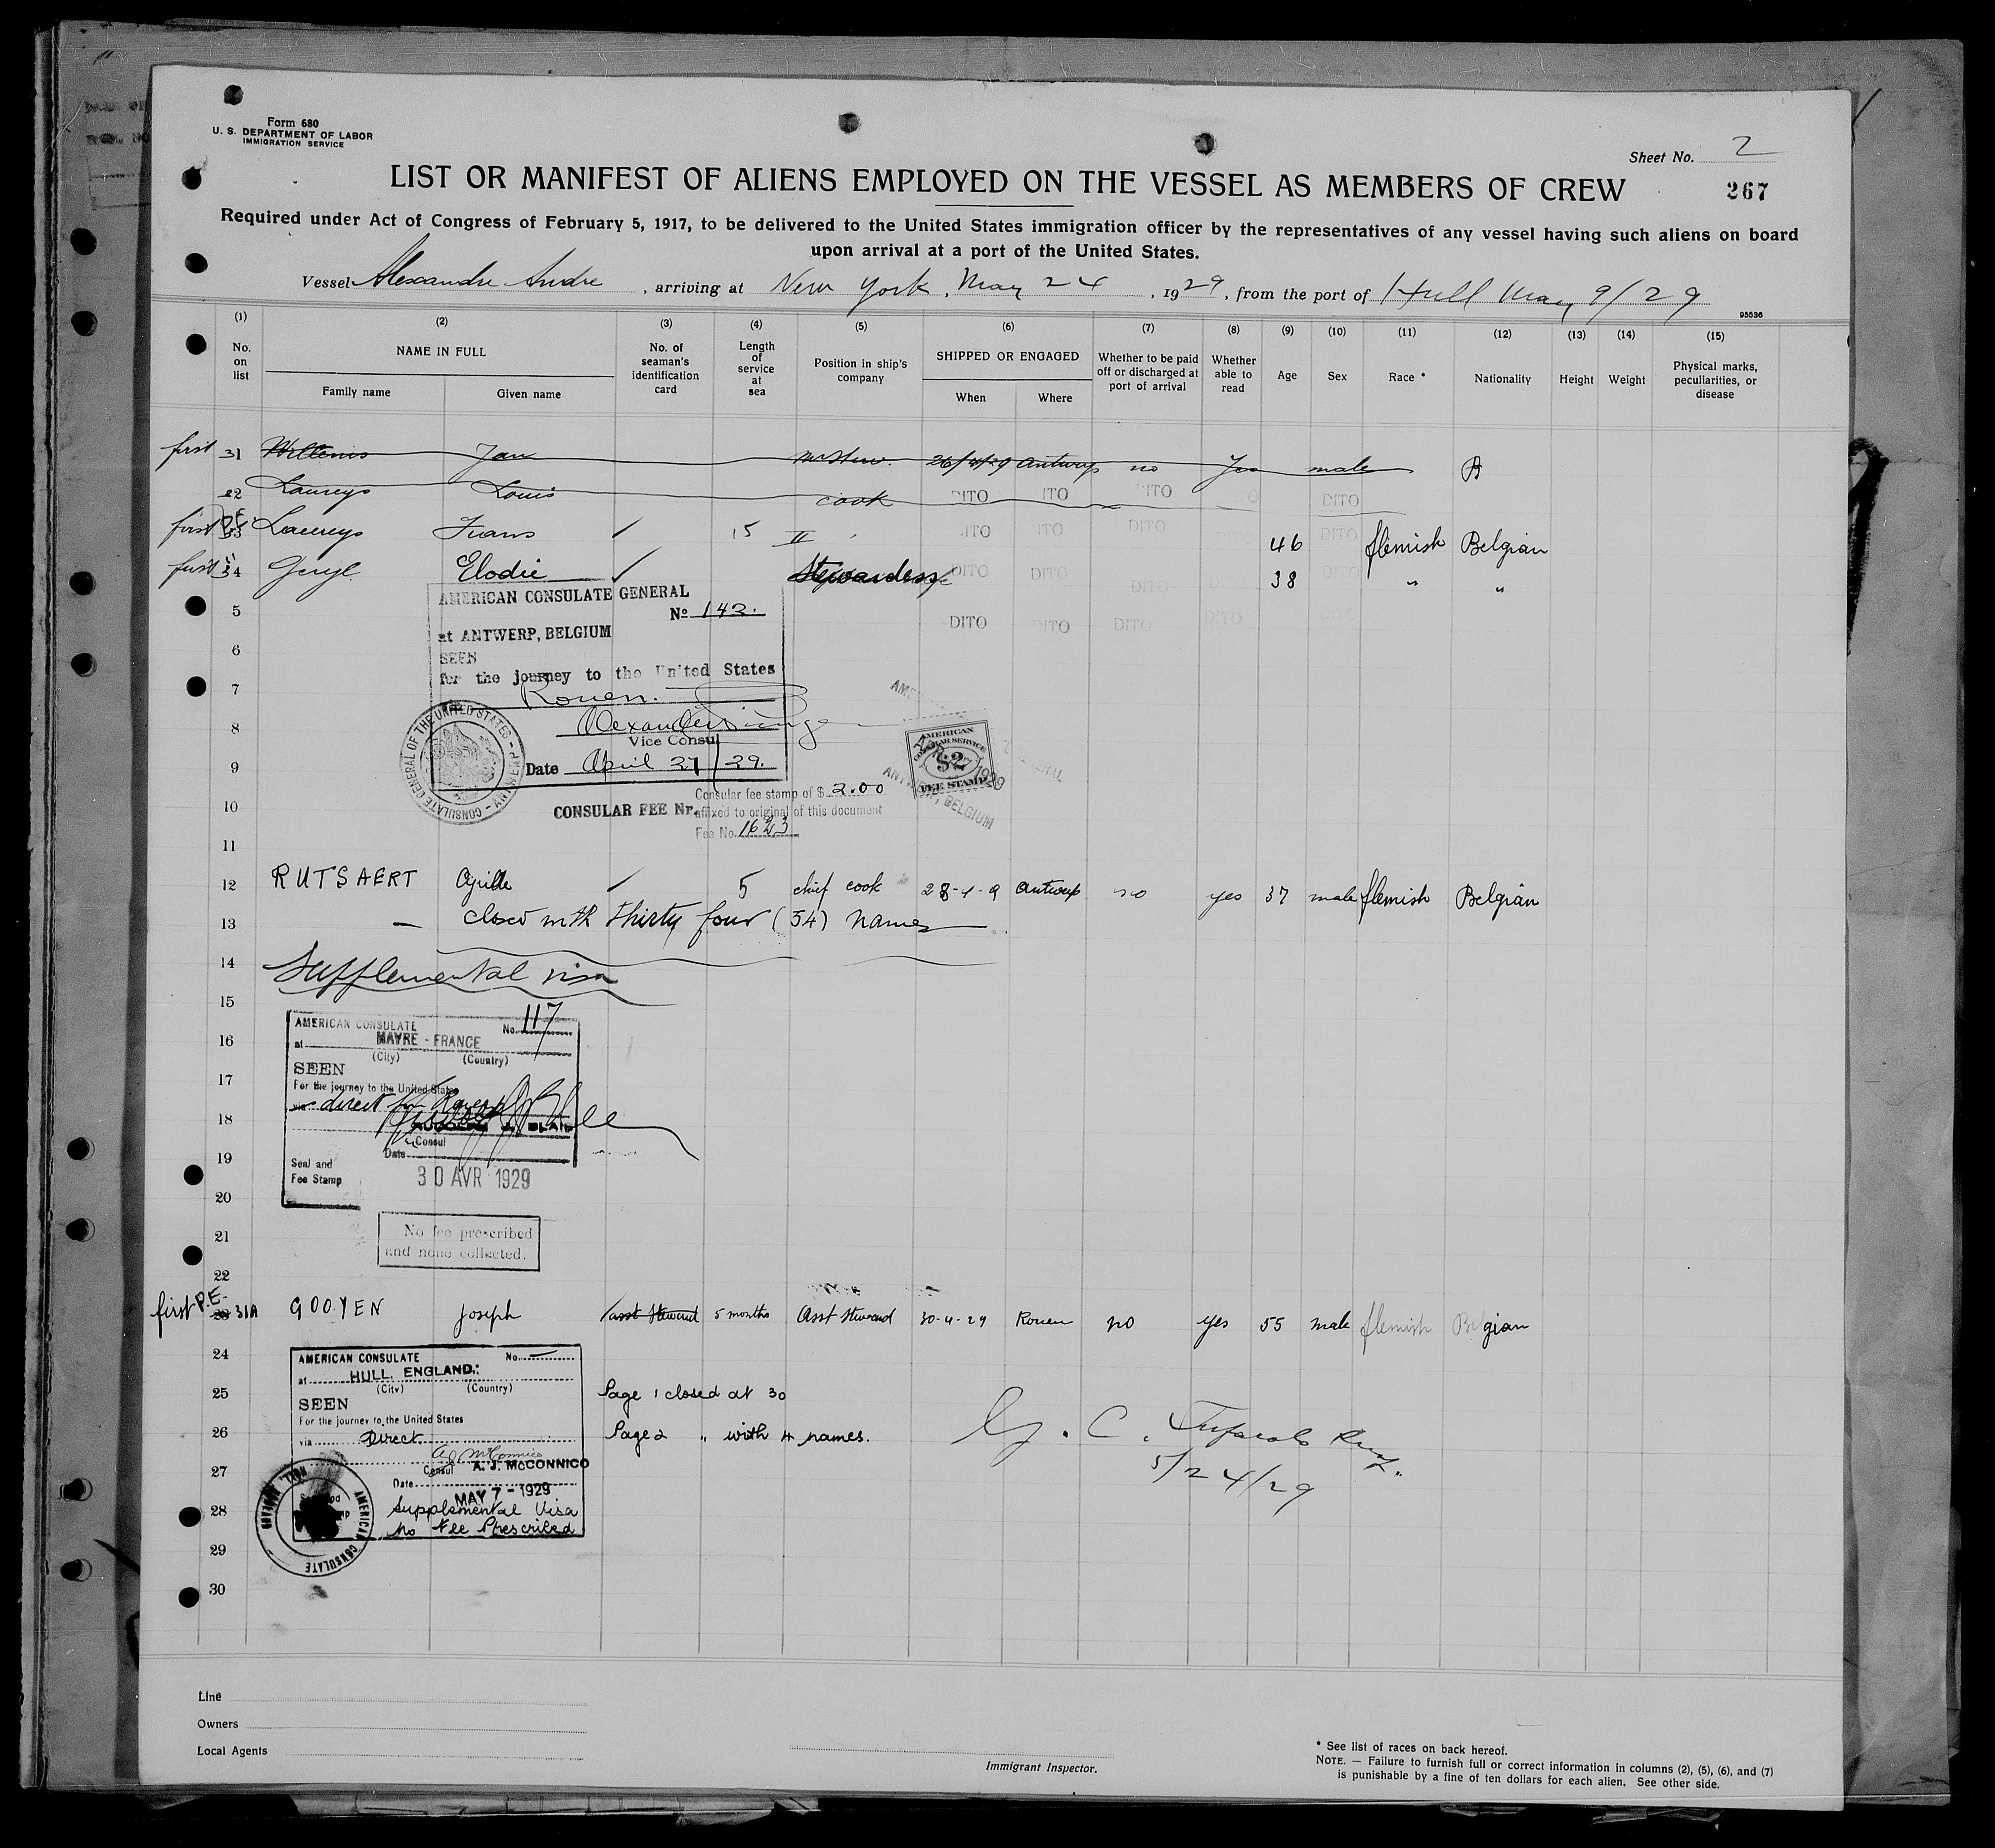 Form 680
U. S. DEPARTMENT OF LABOR
IMMIGRATION SERVICE
Sheet No. 2
LIST OR MANIFEST OF ALIENS EMPLOYED ON THE VESSEL AS MEMBERS OF CREW
267
Required under Act of Congress of February 5, 1917, to be delivered to the United States immigration officer by the representatives of any vessel having such aliens on board
upon arrival at a port of the United States.
Vessel Alexandre Andre, arriving at New York, May 24, 1929, from the port of Hull May 9/29
95536
(1) (2) (3) (4) (5) (6) (7) (8) (9) (10) (11) (12) (13) (14) (15)
No. on list
NAME IN FULL
Family name
Given name
No. of seaman's identification card
Length of service at sea
Position in ship's company
SHIPPED OR ENGAGED
When
Where
Whether to be paid off or discharged at port of arrival
Whether able to read
Age
Sex
Race *
Nationality
Height
Weight
Physical marks, peculiarities, or disease
first 31 Willems Jan 26/4/29 Antwerp no Yes male B
Laureys Louis cook DITO ITO DITO O DITO
first 33 Laureys Frans 15 II DITO DITO DITO 46 DITO flemish Belgian
first 34 Geryl Elodie Stewardess DITO DITO DITO 38 DITO " "
5 DITO DITO DITO DITO DITO
AMERICAN CONSULATE GENERAL
No 142.
at ANTWERP, BELGIUM
6
SEEN
for the journey to the United States
7
Rouen.
8
Vice Consul
9
Date April 27/29.
CONSULATE GENERAL OF THE UNITED STATES - ANTWERP
AMERICAN CONSULAR SERVICE
$2
FEE STAMP
ANTWERP, BELGIUM
Consular fee stamp of $ 2.00
10
CONSULAR FEE Nr. affixed to original of this document
Fee No. 1623
11
12 RUTSAERT 5 chief cook Antwerp no yes 37 male flemish Belgian
13 — closed with Thirty four (34) names
14 Supplemental visa
15
AMERICAN CONSULATE No. 117
16
at HAVRE - FRANCE
(City) (Country)
SEEN
17
For the journey to the United States
via direct
18
RUDOLPH J. BLAIS
Consul
Date
19
Seal and
Fee Stamp
30 AVR 1929
20
21
No fee prescribed
and none collected.
22
first P.E. 31A GOOYEN Joseph asst Steward 5 months Asst Steward 30-4-29 Rouen no yes 55 male flemish Belgian
24
AMERICAN CONSULATE No. —
at HULL, ENGLAND.
(City) (Country)
25 Page 1 closed at 30
SEEN
For the journey to the United States
26 Page 2 " with 4 names.
via Direct
27
Consul A. J. McCONNICO
Date MAY 7 - 1929
5/24/29
28
Supplemental Visa
No Fee Prescribed
AMERICAN CONSULATE
29
30
Line
Owners
Local Agents
Immigrant Inspector.
* See list of races on back hereof.
NOTE. — Failure to furnish full or correct information in columns (2), (5), (6), and (7)
is punishable by a fine of ten dollars for each alien. See other side.